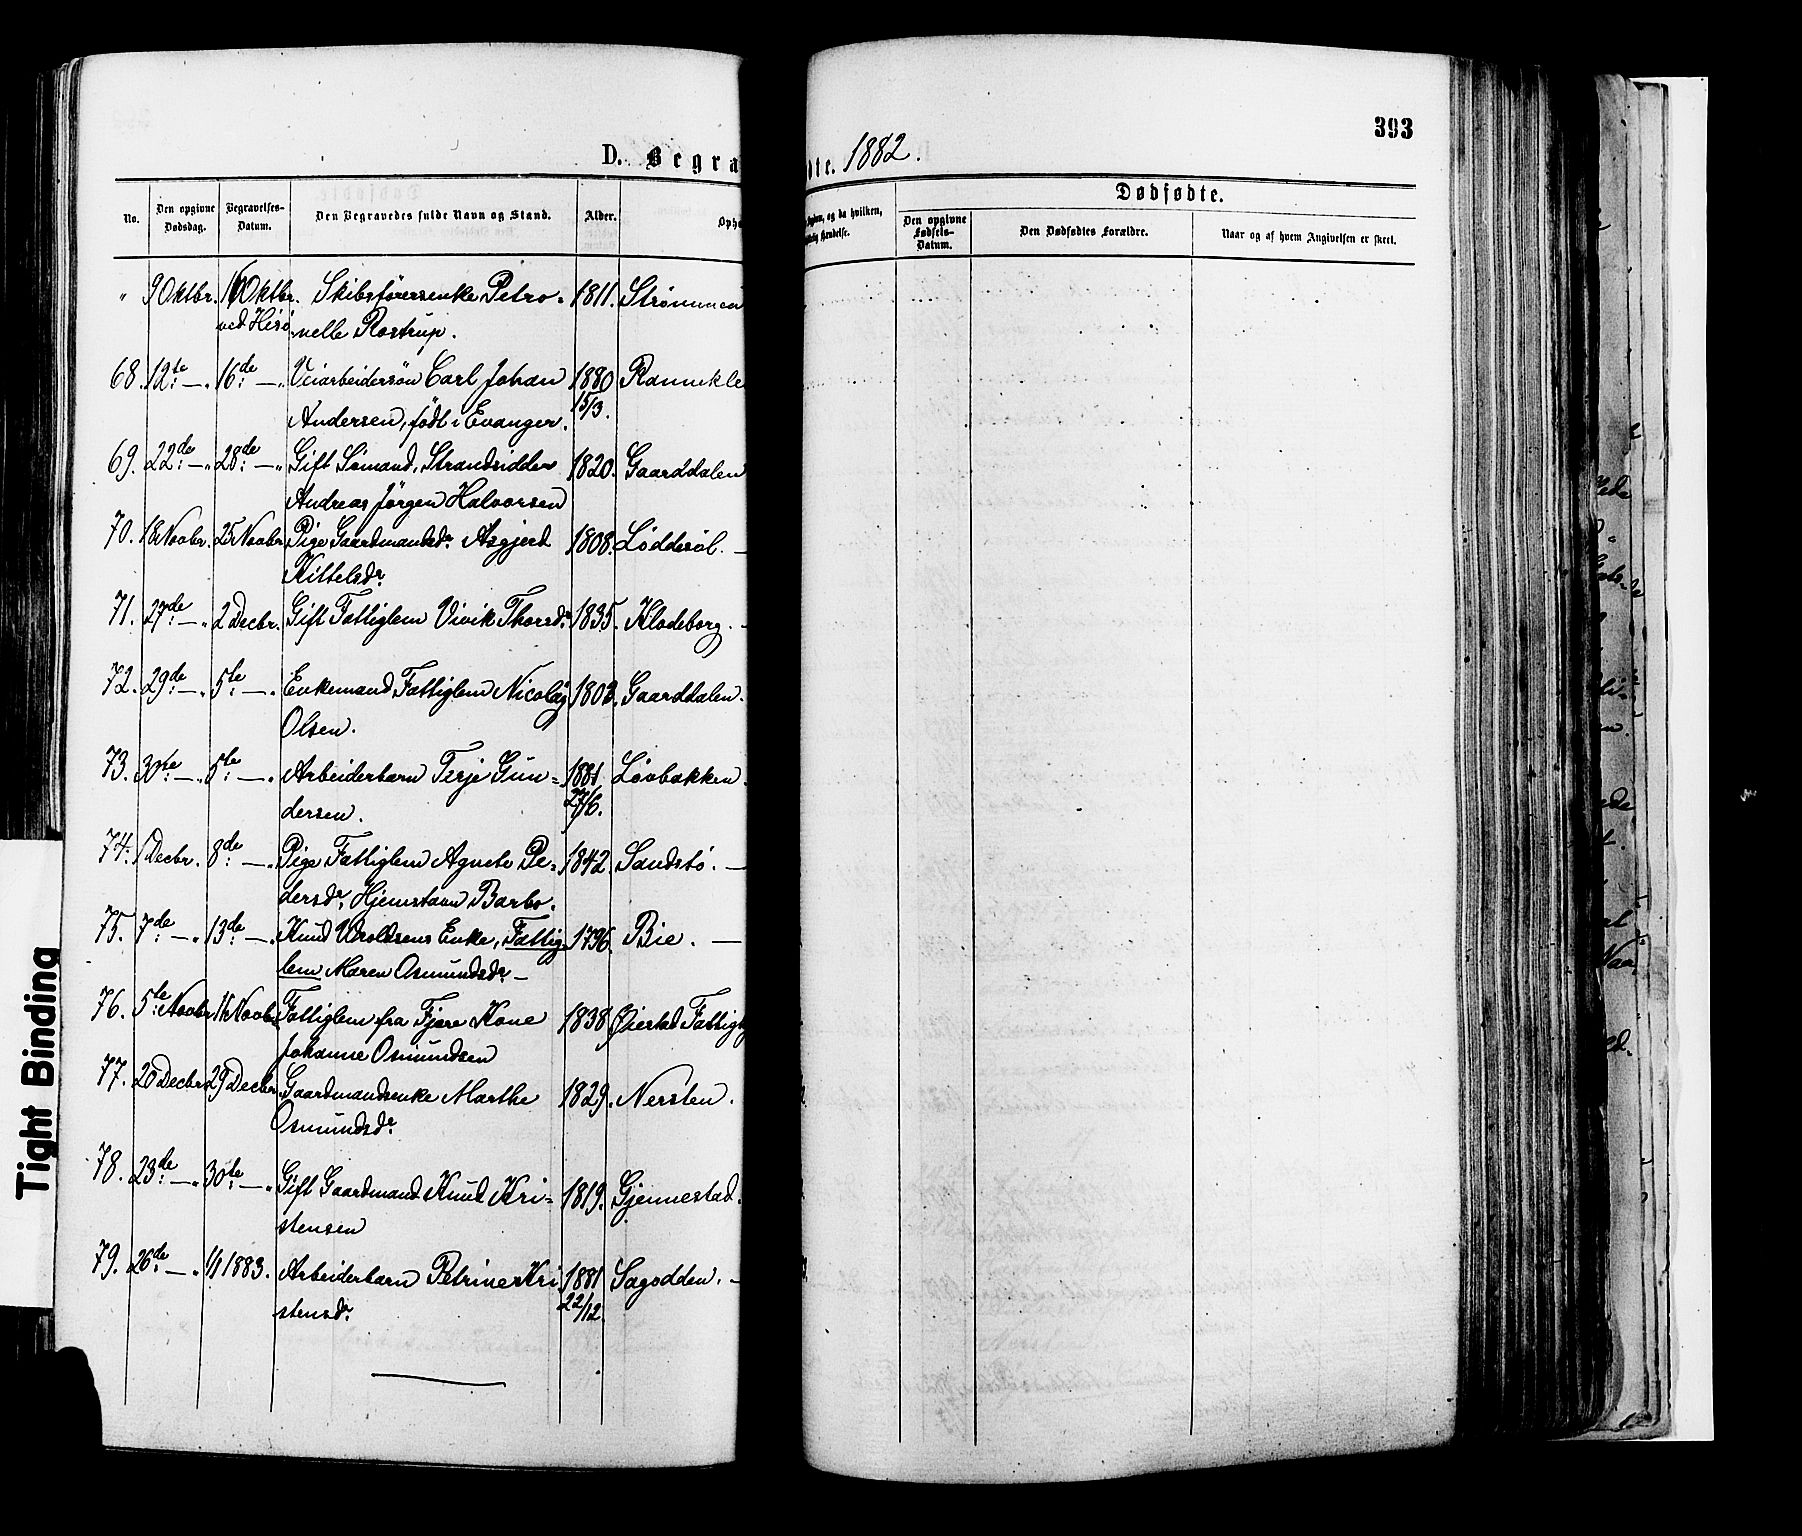 393
D. Begra
dte. 1882.
Dødfødte.
No. Den opgivne Dødsdag. Begravelses-Datum. Den Begravedes fulde Navn og Stand. Alder. Opho
Sygdom, og da hvilken,
Hændelse.
Den opgivne Fødsels-Datum. Den Dødfødtes Forældre. Naar og af hvem Angivelsen er skeet.
" 9 Oktbr. 16 Oktbr. Skibsførersenke Petro- 1811. Strømmen
ved Hisø nelle Rostrup.
68. 12te — " 16de — " Veiarbeidersøn Carl Johan 1880 Rannekle
Andersen, født i Evanger. 15/3.
69. 22de — " 28de — " Gift Sømand, Strandsidder 1820. Gaarddalen
Andreas Jørgen Halvorsen
70. 18 Novbr. 25 Novbr. Pige Gaardmandsdr. Asgjerd 1808. Løddesøl. —
Kittelsdr.
71. 27de — " 2 Decbr. Gift Fattiglem Vivik Thorsdr. 1835. Klodeborg. —
72. 29de — " 5te — " Enkemand Fattiglem Nicolai 1802. Gaarddalen.
Olsen.
73. 30te — " 5te — " Arbeiderbarn Terje Gun- 1881 Løvbakken.
dersen. 27/6.
74. 1 Decbr. 8de — " Pige Fattiglem Agnete Pe- 1842. Sandstø. —
dersdr. Hjemstavn Barbo.
75. 7de — " 13de — " Knud Uroldsens Enke, Fattig- 1796. Bie. —
lem Maren Osmundsdr. —
76. 5te Novbr 11 Novbr. Fattiglem fra Fjære Kone 1838 Øiestad Fattig
Johanne Osmundsen
77. 20 Decbr 29 Decbr. Gaardmandsenke Marthe 1829. Nersten.
Osmundsdr.
78. 23de — " 30te — " Gift Gaardmand Knud Kri- 1819. Gjennestad.
stensen
79. 26de — " 1/1 1883. Arbeiderbarn Petrine Kri 1881 Sagodden. —
stensdr. 22/12.
Tight Binding